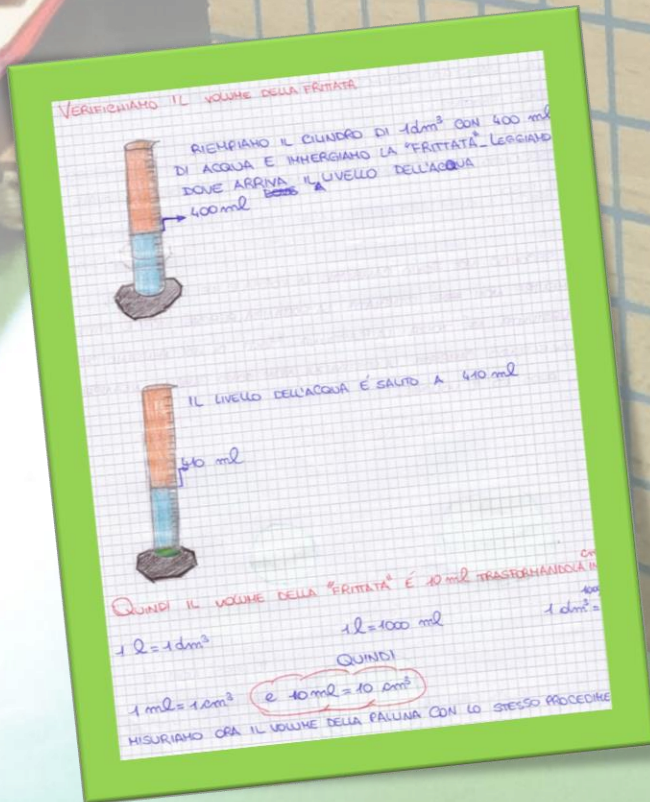 VERIFICHIAMO IL VOLUME DELLA FRITTATA
RIEMPIAMO IL CILINDRO DI 1dm³ CON 400 ml
DI ACQUA E IMMERGIAMO LA "FRITTATA". LEGGIAMO
DOVE ARRIVA IL LIVELLO DELL'ACQUA
400 ml
IL LIVELLO DELL'ACQUA É SALITO A 410 ml
410 ml
QUINDI IL VOLUME DELLA "FRITTATA" É 10 ml TRASFORMANDOLA IN
1 l = 1 dm³ 1 l = 1000 ml 1 dm³ =
QUINDI
1 ml = 1 cm³ e 10 ml = 10 cm³
MISURIAMO ORA IL VOLUME DELLA PALLINA CON LO STESSO PROCEDIME